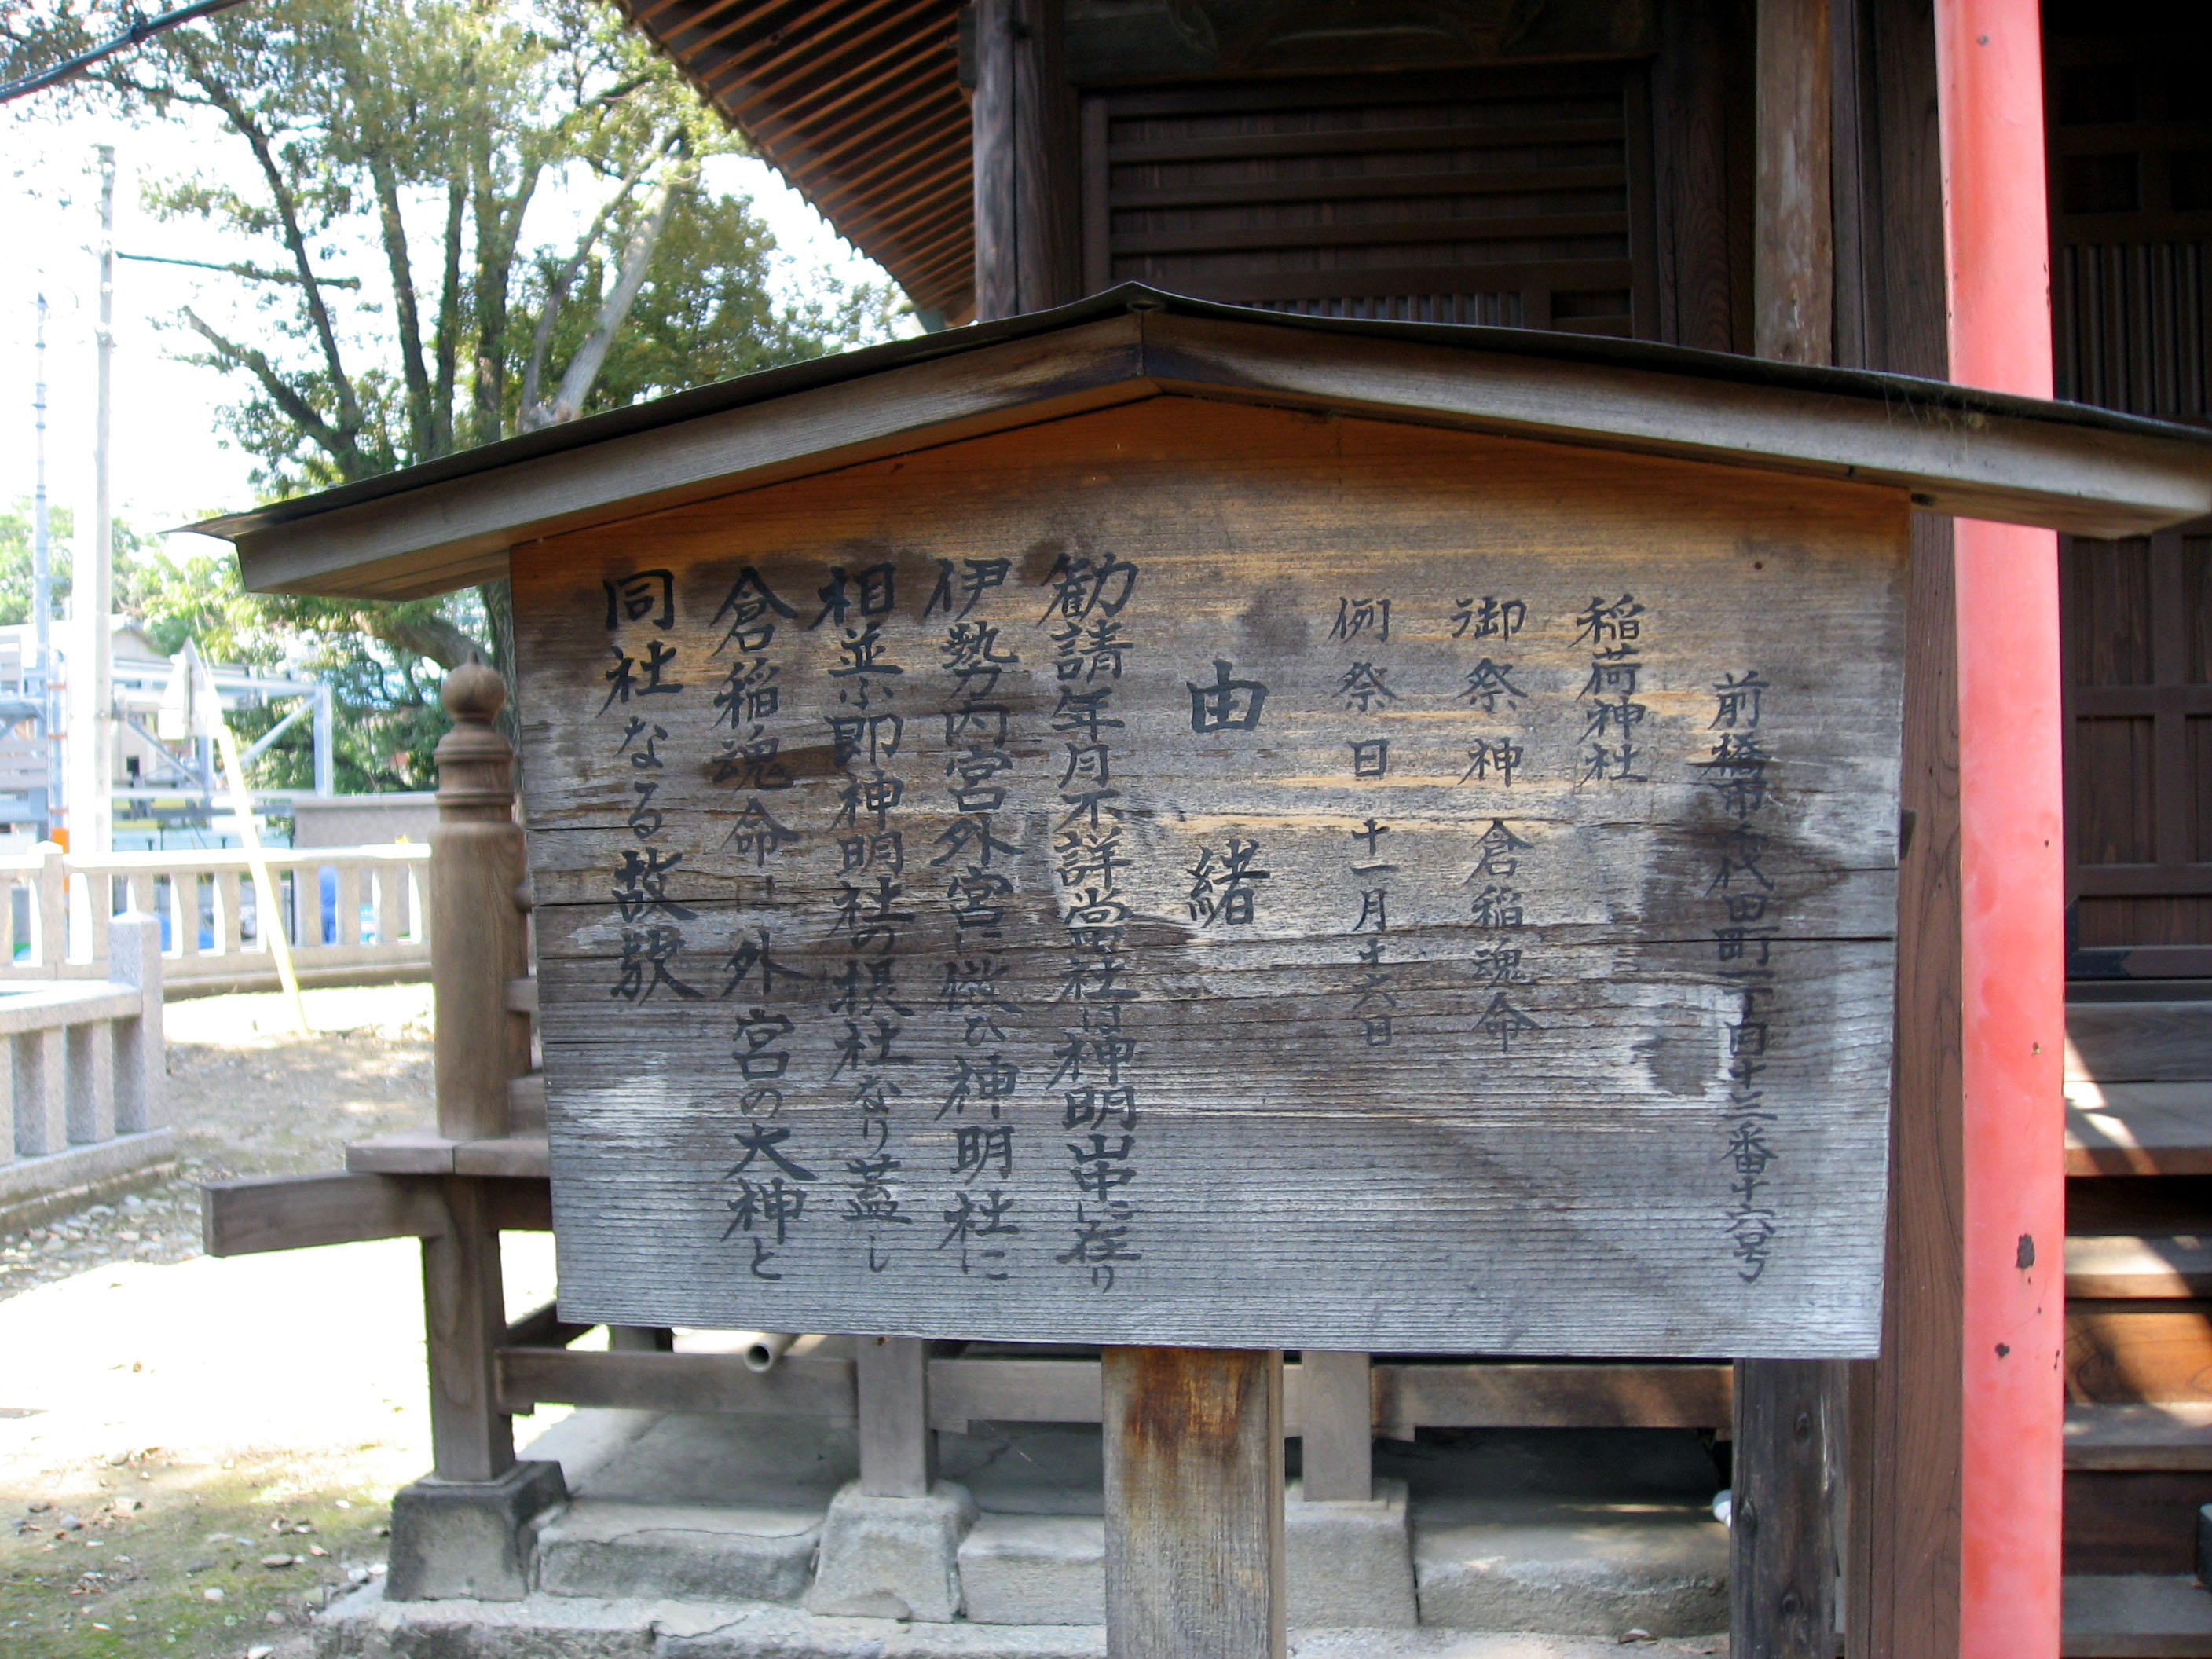 前橋市千代田町一丁目十三番十六号
稲荷神社
御祭神 倉稲魂命
例祭日 十一月十六日
由緒
勧請年月不詳尚当社は神明山中に在り
伊勢内宮外宮に倣ひ神明社に
相並ふ即神明社の摂社なり蓋し
倉稲魂命は外宮の大神と
同社なる故歟